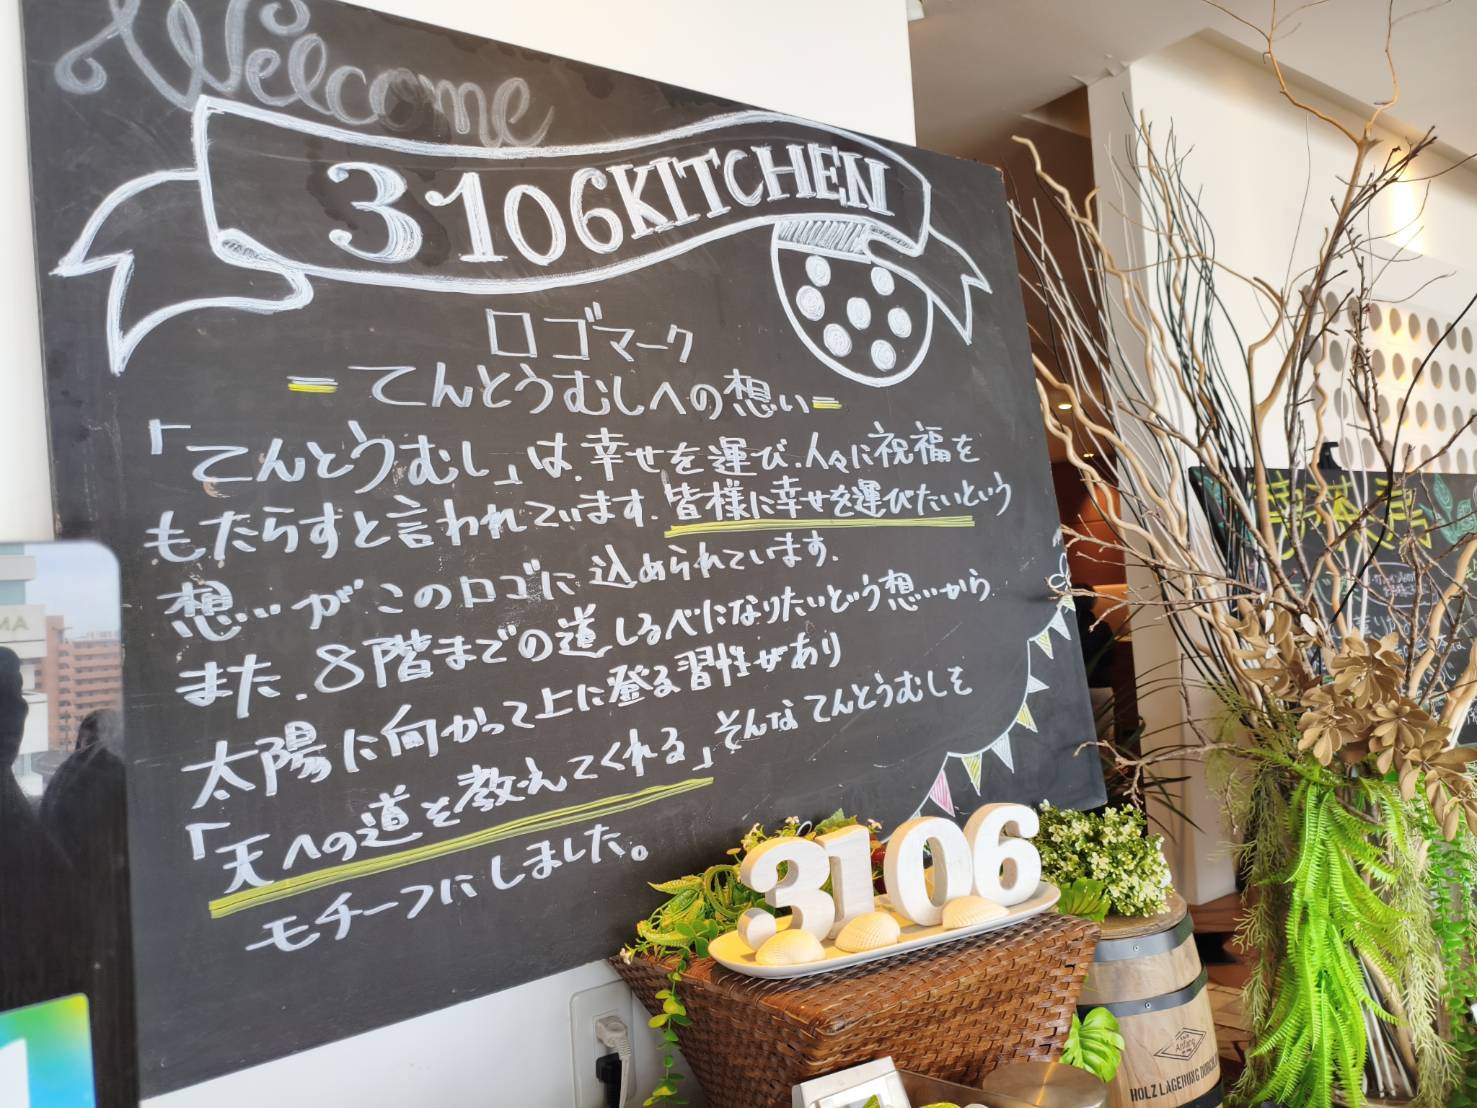 Welcome
3106KITCHEN
ロゴマーク
= てんとうむしへの想い =
「てんとうむし」は、幸せを運び、人々に祝福を
もたらすと言われています。皆様に幸せを運びたいという
想いがこのロゴに込められています。
また、8階までの道しるべになりたいという想いから
太陽に向かって上に登る習性があり
「天への道を教えてくれる」そんなてんとうむしを
モチーフにしました。
3106
HOLZ LAGERUNG